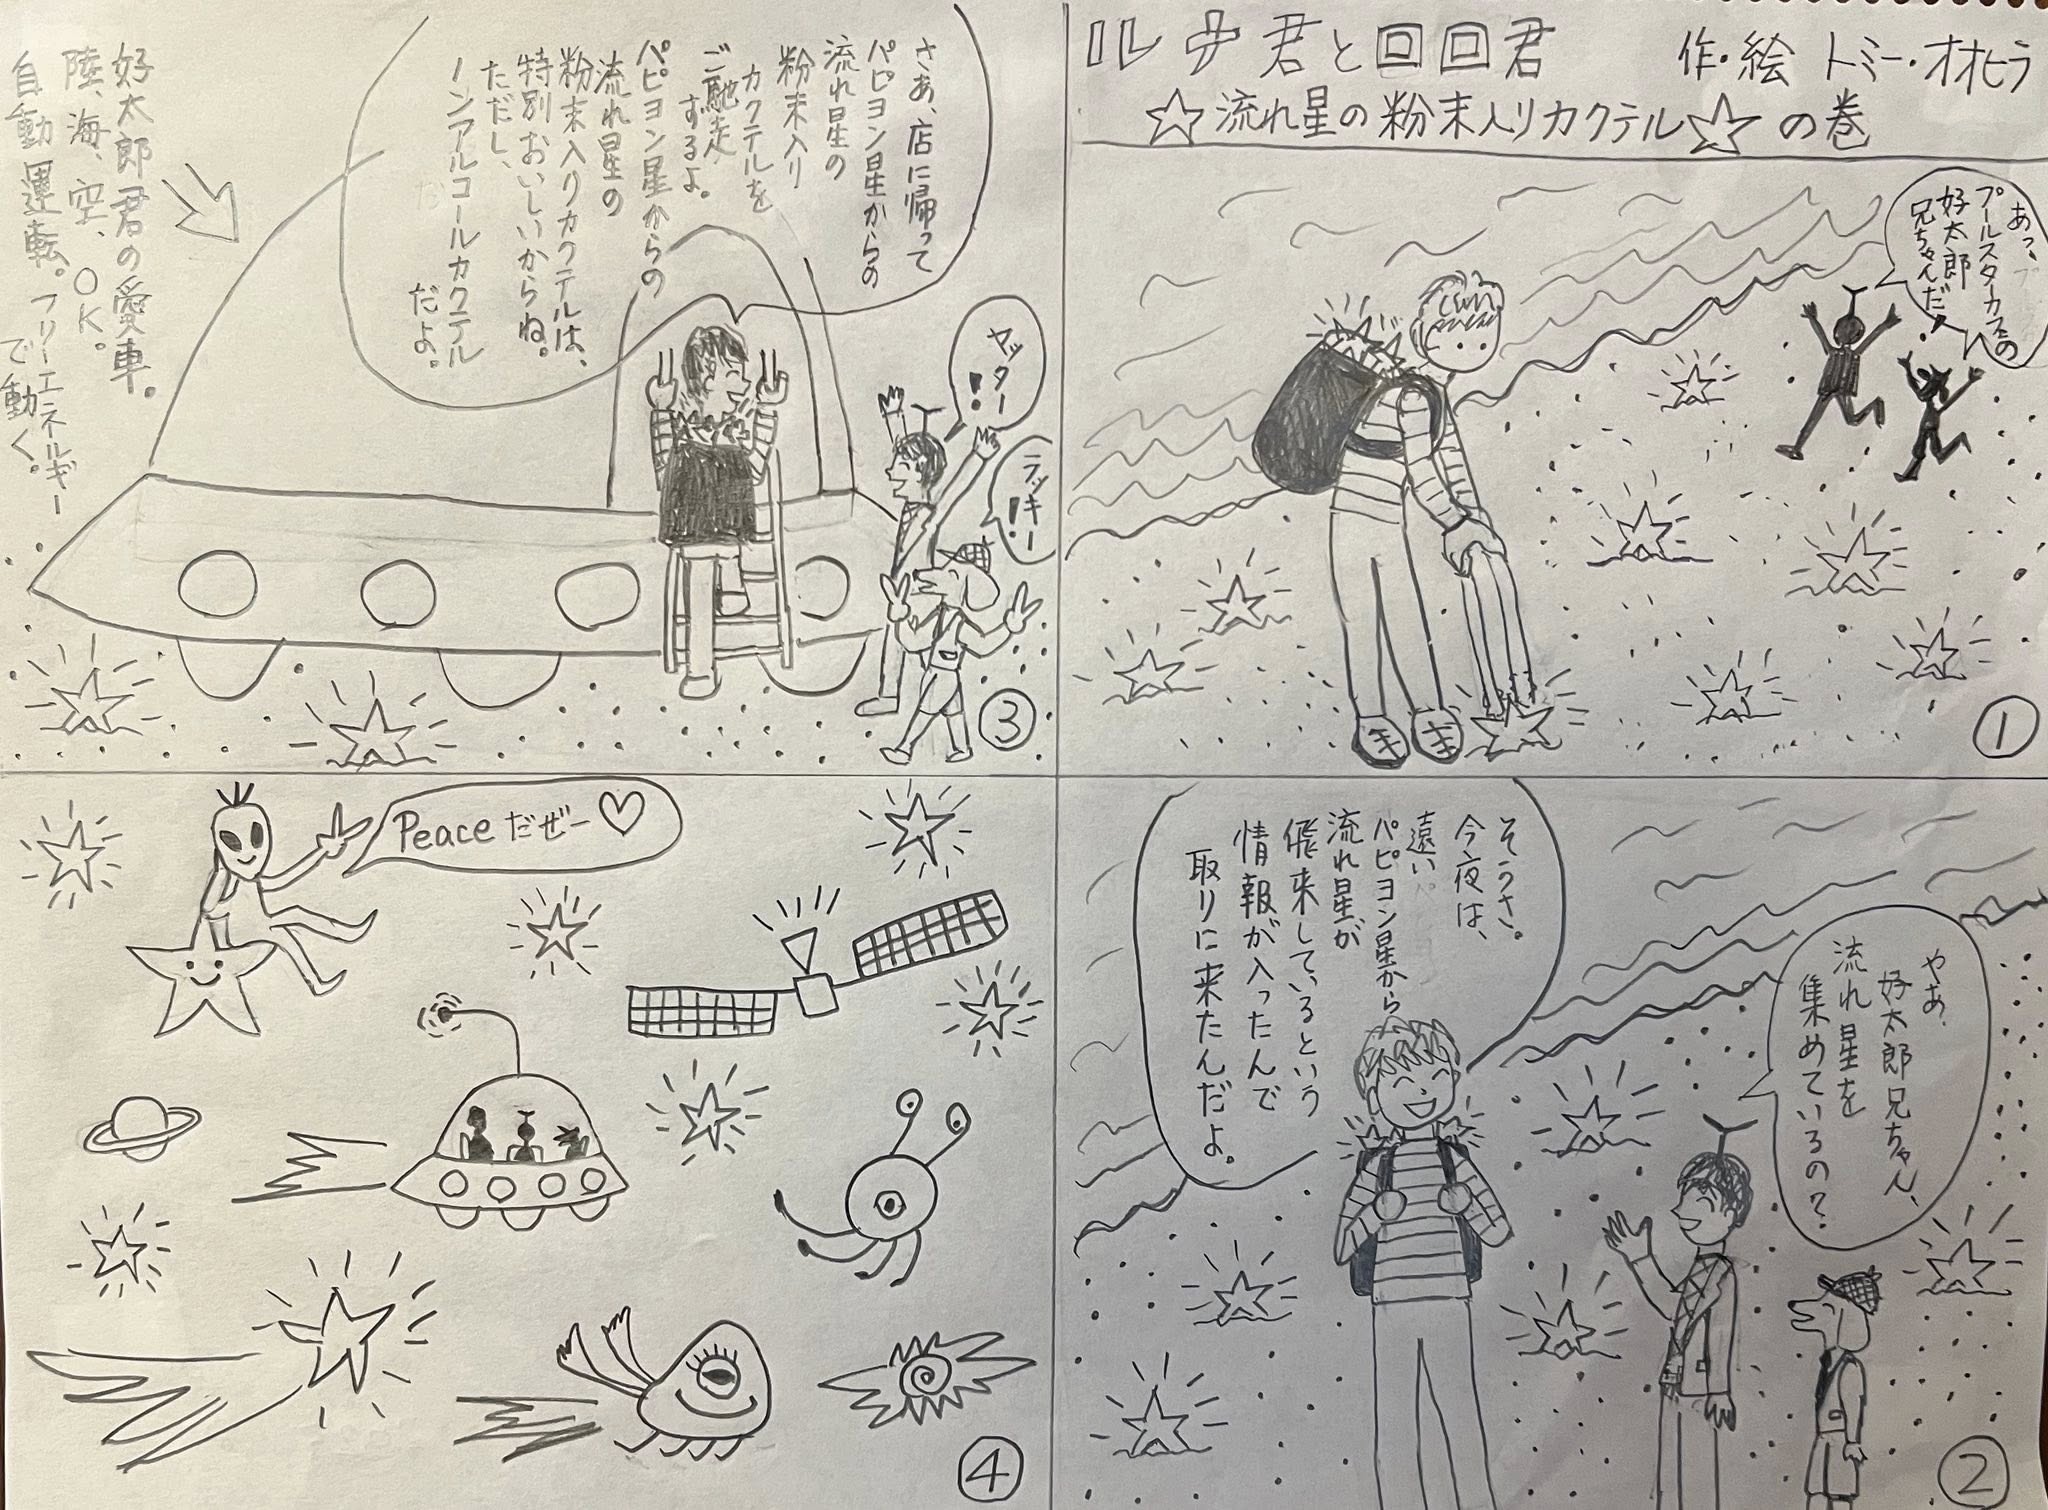 ルナ君と回回君
作・絵 トミー・オオヒラ
☆流れ星の粉末入りカクテル☆の巻
あっ、
プールスターカフェの
好太郎
兄ちゃんだ!
①
やあ、
好太郎兄ちゃん、
流れ星を
集めているの?
そうさ。
今夜は、
遠い
パピヨン星から
流れ星が
飛来しているという
情報が入ったんで
取りに来たんだよ。
②
さあ、店に帰って
パピヨン星からの
流れ星の
粉末入り
カクテルを
ご馳走
するよ。
パピヨン星からの
流れ星の
粉末入りカクテルは、
特別おいしいからね。
ただし、
ノンアルコールカクテル
だよ。
ヤッター!
ラッキー!
好太郎君の愛車。
陸、海、空、OK。
自動運転。フリーエネルギー
で動く。
③
Peaceだぜー♡
④